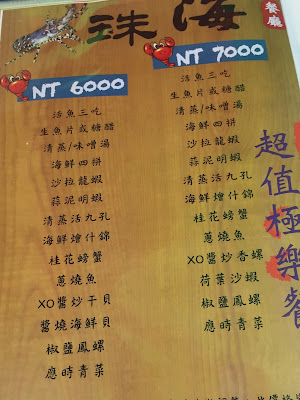 珠海
餐廳
NT 6000
活魚三吃
生魚片或糖醋
清蒸/味噌湯
海鮮四拼
沙拉龍蝦
蒜泥明蝦
清蒸活九孔
海鮮燴什錦
桂花螃蟹
蔥燒魚
XO醬炒干貝
醬燒海鮮貝
椒鹽鳳螺
應時青菜
NT 7000
活魚三吃
生魚片或糖醋
清蒸/味噌湯
海鮮四拼
沙拉龍蝦
蒜泥明蝦
清蒸活九孔
海鮮燴什錦
桂花螃蟹
蔥燒魚
XO醬炒香螺
荷葉沙蝦
椒鹽鳳螺
應時青菜
超值極樂餐